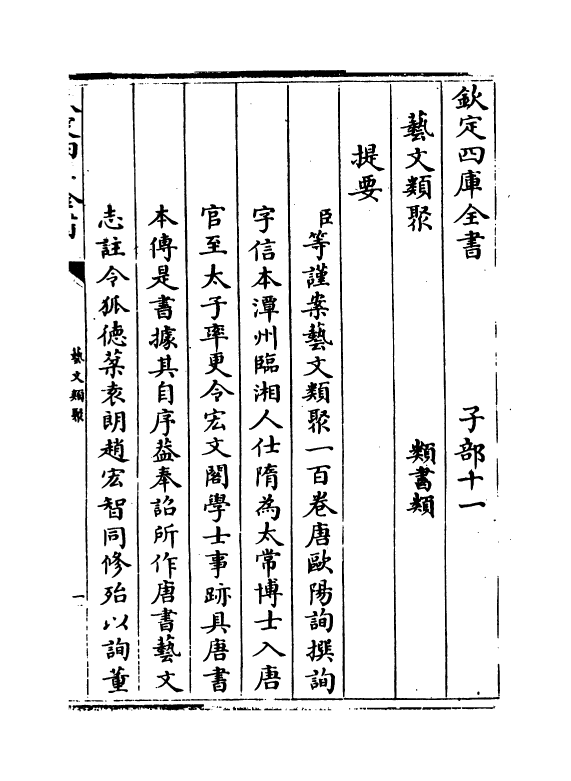 欽定四庫全書　子部十一
藝文類聚　類書類
提要
臣等謹案藝文類聚一百卷唐歐陽詢撰詢
字信本潭州臨湘人仕隋為太常博士入唐
官至太子率更令宏文閣學士事跡具唐書
本傳是書據其自序葢奉詔所作唐書藝文
志註令狐德棻袁朗趙宏智同修殆以詢董
藝文類聚
一